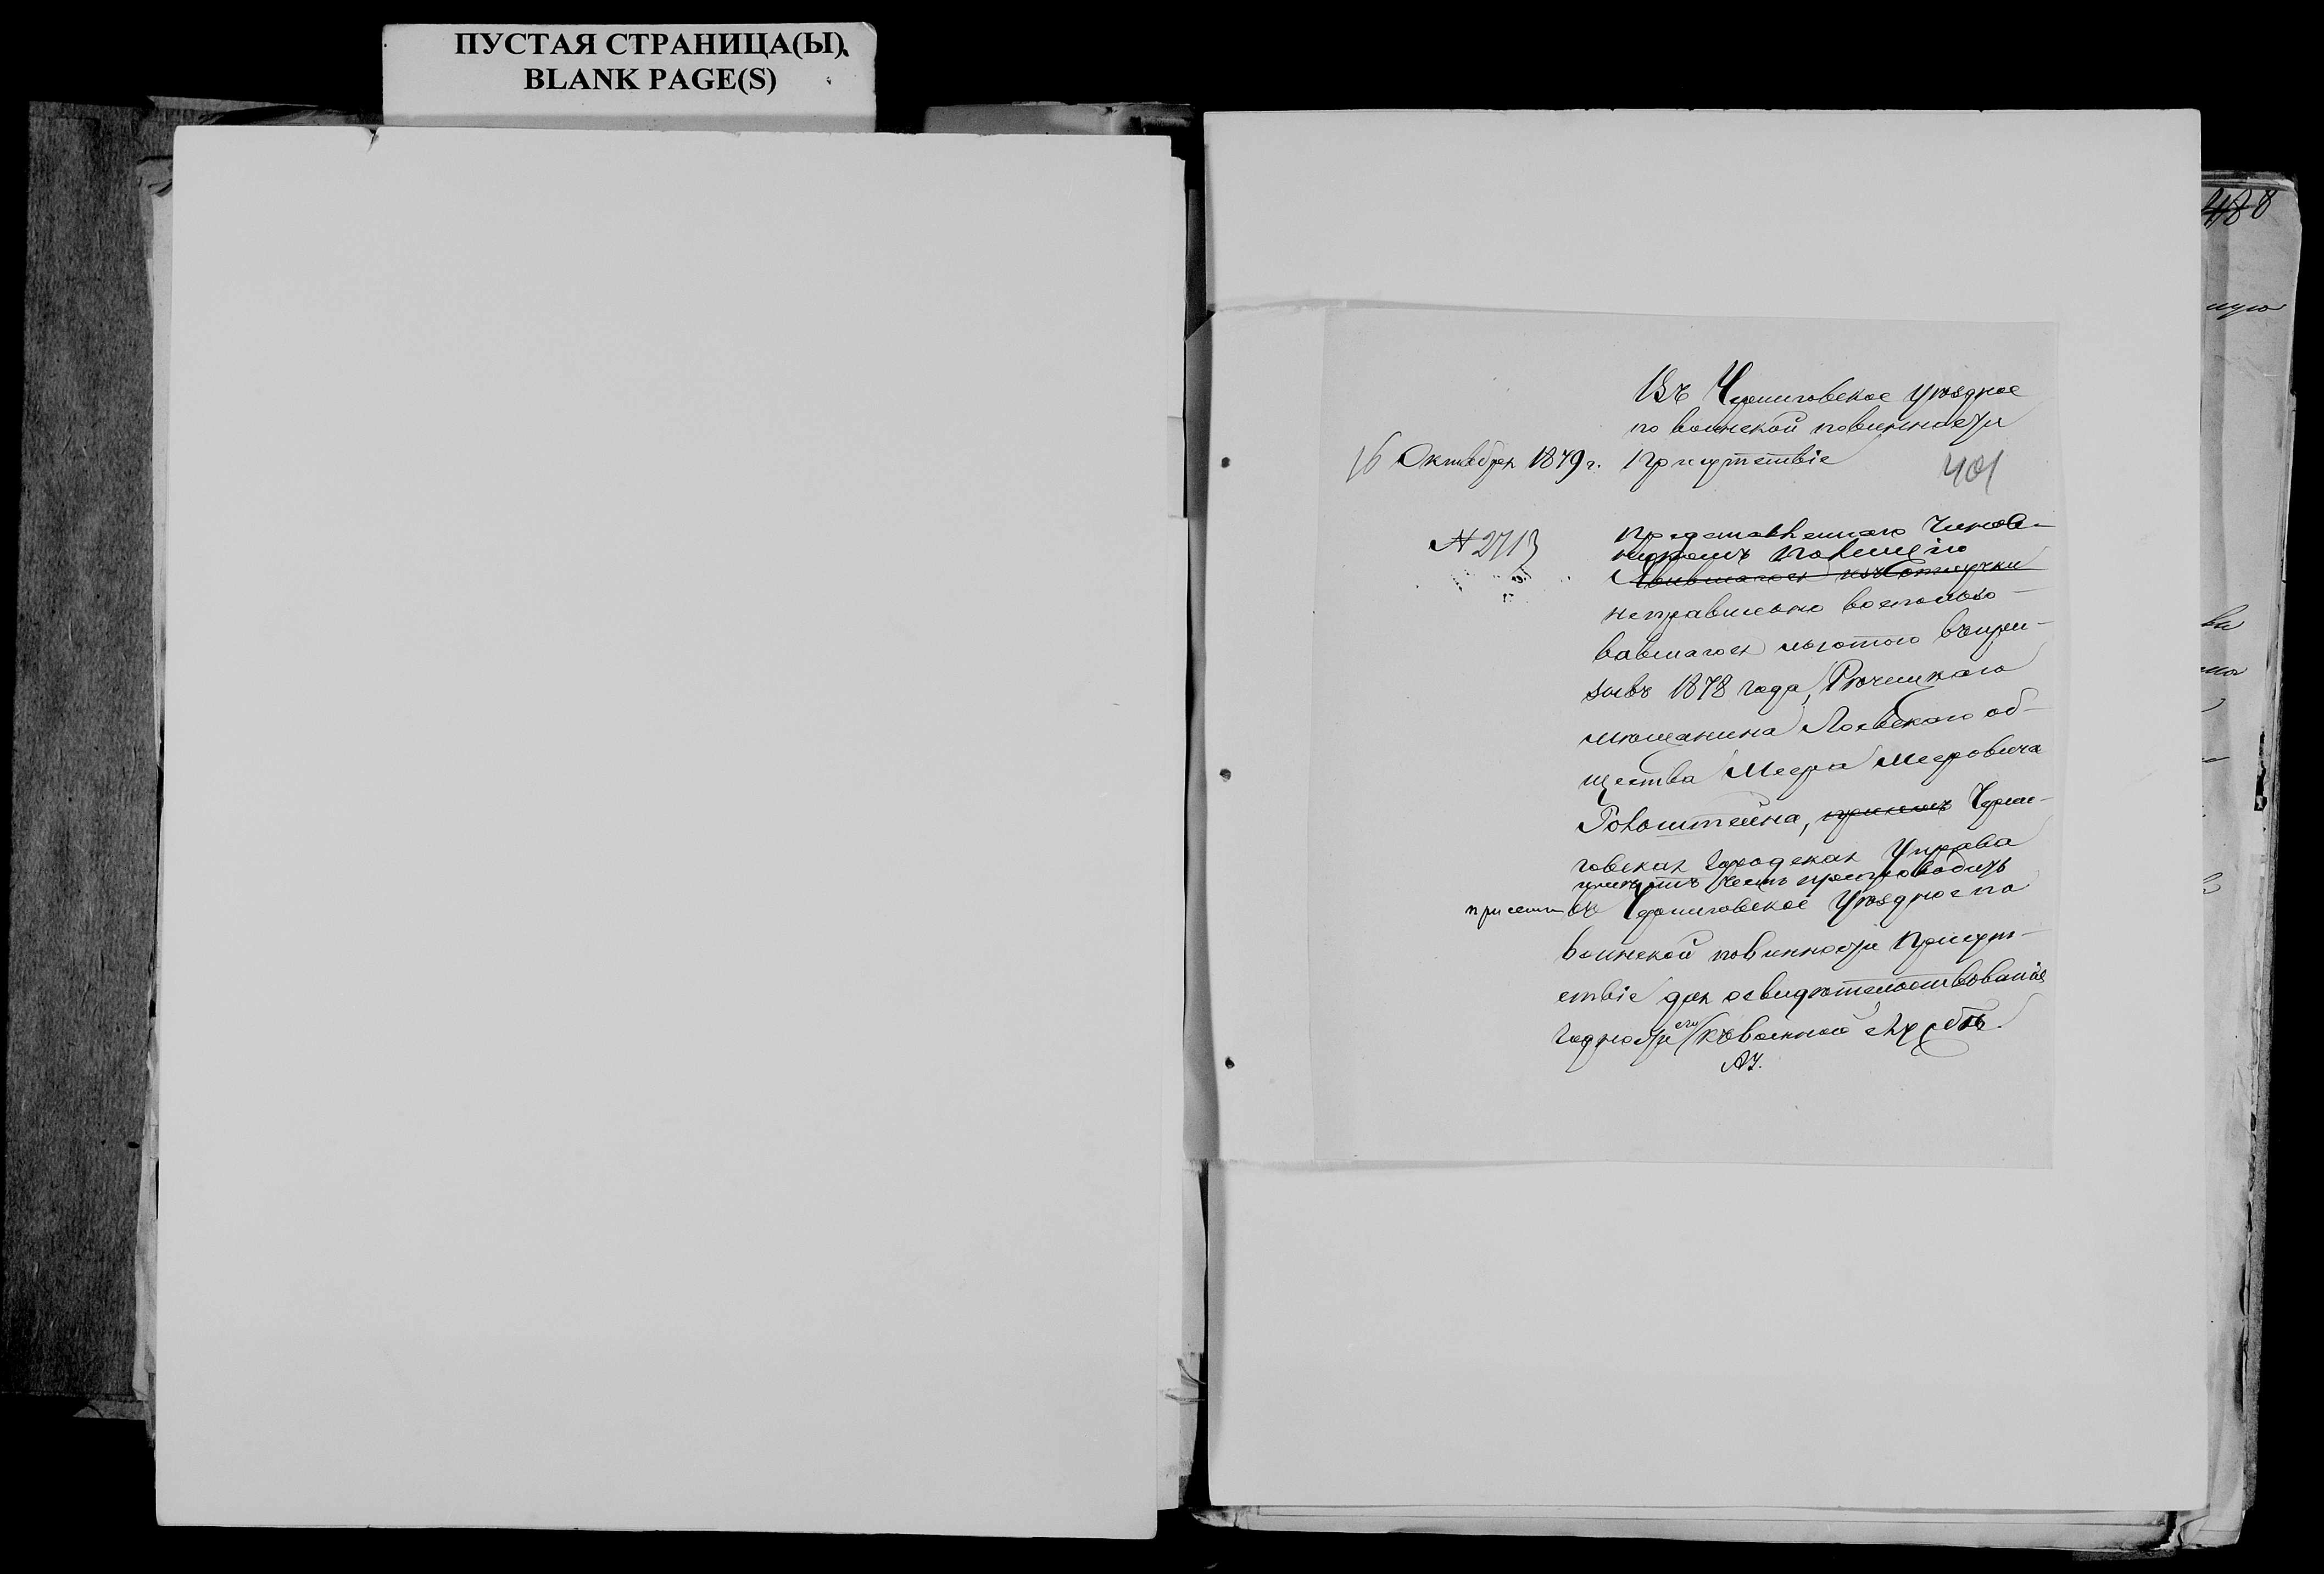 ПУСТАЯ СТРАНИЦА(Ы)
BLANK PAGE(S)
488
ную
Въ Черниговское Уѣздное
по воинской повинности
16 Октября 1879 г. Присутствіе
401
№ 2713
Представленнаго Чинов-
никомъ Полиціи
Явившагося изъ Отлучки
неправильно воспользо-
вавшагося льготою въ при-
зывъ 1878 года, Рѣчицкаго
мѣщанина Лоевскаго об-
щества Меера Мееровича
Рольштейна, при семъ Черни-
говская Городская Управа
имѣетъ честь препроводить
при семъ въ Черниговское Уѣздное по
воинской повинности Присут-
ствіе для освидѣтельствованія
годности его къ военной службѣ.